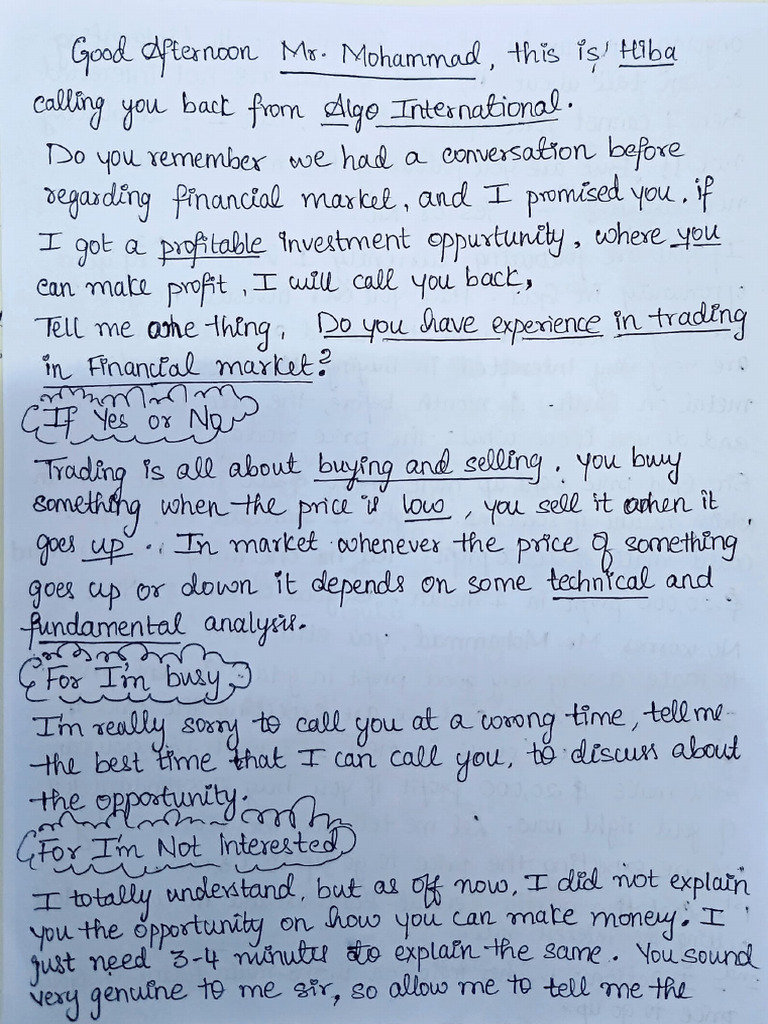 Good Afternoon Mr. Mohammad, this is Hiba
calling you back from Algo International.
Do you remember we had a conversation before
regarding financial market, and I promised you, if
I got a profitable investment oppurtunity, where you
can make profit, I will call you back,
Tell me one thing, Do you have experience in trading
in Financial market?
If Yes or No
Trading is all about buying and selling. you buy
something when the price is low, you sell it when it
goes up.. In market whenever the price of something
goes up or down it depends on some technical and
fundamental analysis.
For I'm busy
I'm really sorry to call you at a wrong time, tell me
the best time that I can call you, to discuss about
the opportunity.
For I'm Not Interested
I totally understand, but as off now, I did not explain
you the opportunity on how you can make money. I
just need 3-4 minutes to explain the same. You sound
very genuine to me sir, so allow me to tell me the